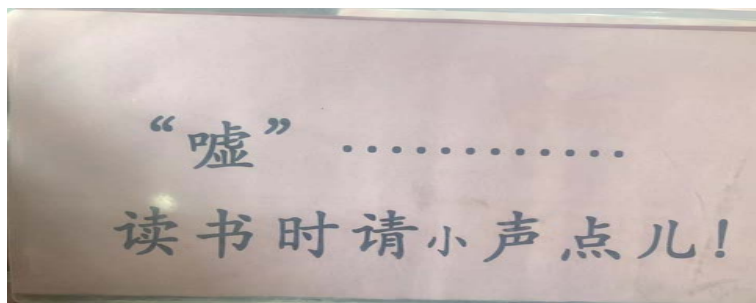 “嘘” ............
读书时请小声点儿!